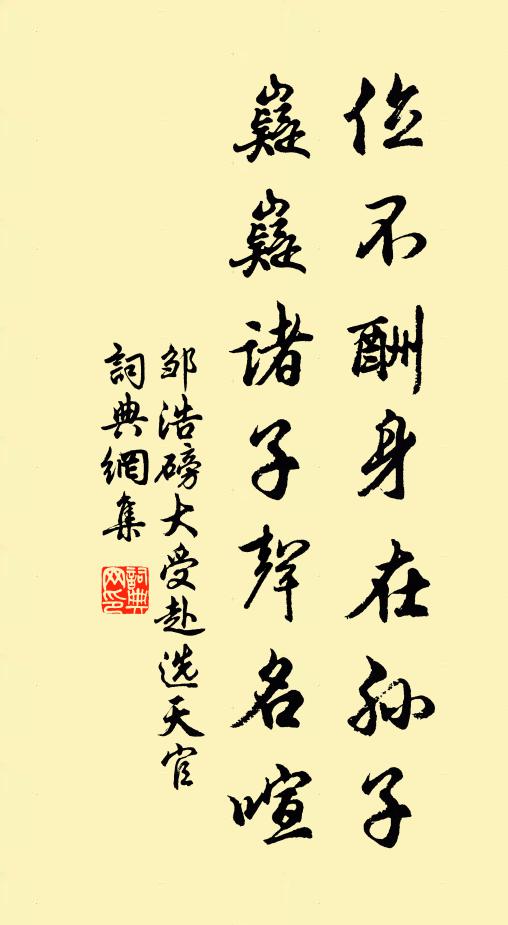 位不酬身在孙子
嶷嶷诸子聲名喧
邹浩磅大受赴选天官
詞典網集
詞典網印